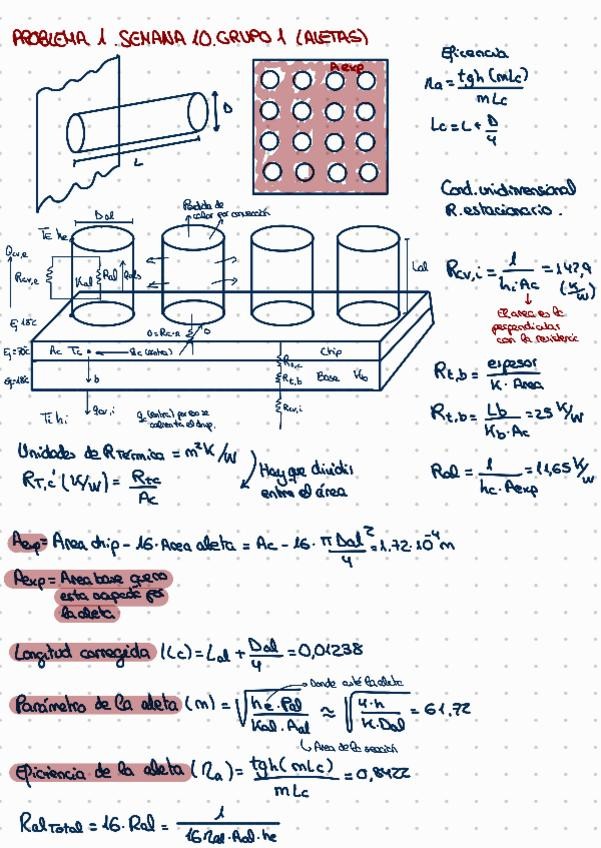 PROBLEMA 1. SEMANA 10. GRUPO 1 (ALETAS)
Aexp
D
L
Eficiencia
ηa = tgh(mLc) / mLc
Lc = L + D/4
Cond. unidimensional
R. estacionario.
Dal
Pérdida de
calor por convección
T∞ he
Qcv,e
Rcv,e
Kal
Ral
Lal
Ac Tc
Chip
Base
Kb
b
qcv,i
T∞ hi
Rt,c
Rt,b
Rcv,i
Rcv,i = 1 / hi·Ac = 142,9 (K/W)
El area es la
perpendicular
con la resistencia
Rt,b = espesor / K·Area
Rt,b = Lb / Kb·Ac = 25 K/W
Ral = 1 / hc·Aexp = 11,65 K/W
Unidades de R Térmica = m²K/W
RT,c' (K/W) = Rtc / Ac
Hay que dividir
entre el área
Aexp = Area chip - 16·Area aleta = Ac - 16·π Dal²/4 = 1.72·10⁻⁴ m
Aexp = Area base que no
esta ocupada por
la aleta
Longitud corregida (Lc) = Lal + Dal/4 = 0,01238
Donde esté la aleta
Parámetro de la aleta (m) = √(he·Pal / Kal·Aal) ≈ √(4·h / K·Dal) = 61,72
Area de la sección
Eficiencia de la aleta (ηa) = tgh(mLc) / mLc = 0,8422
Ral Total = 16·Ral = 1 / 16·ηal·Aal·he